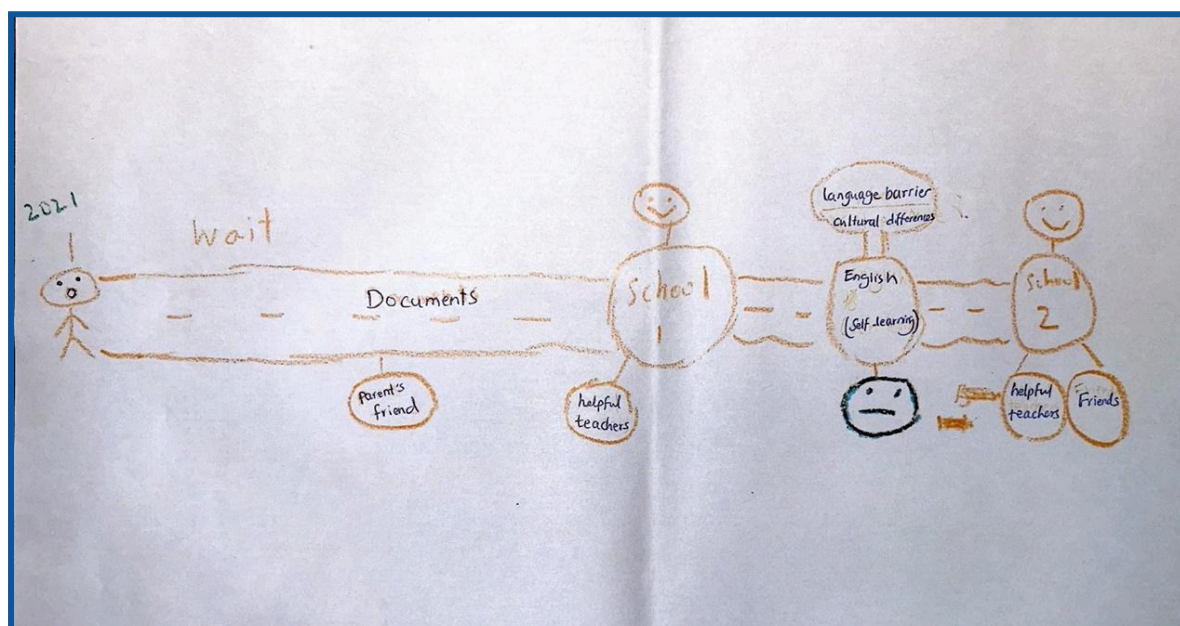 2021
Wait
Documents
Parent's
friend
School
1
helpful
teachers
language barrier
cultural differences
English
(Self learning)
School
2
helpful
teachers
Friends